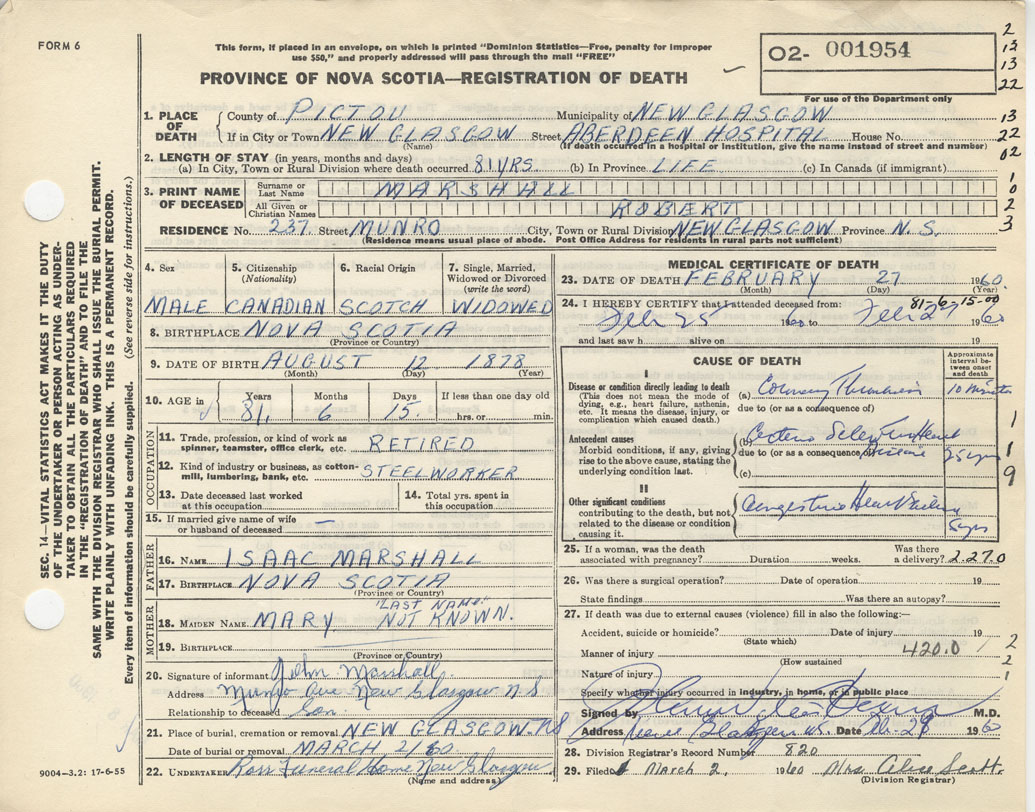 FORM 6
This form, if placed in an envelope, on which is printed "Dominion Statistics—Free, penalty for improper
use $50," and properly addressed will pass through the mail "FREE"
PROVINCE OF NOVA SCOTIA—REGISTRATION OF DEATH
02- 001954
For use of the Department only
2
13
13
22
13
22
02
1
0
2
3
1. PLACE OF DEATH
County of PICTOU Municipality of NEW GLASGOW
If in City or Town NEW GLASGOW Street ABERDEEN HOSPITAL House No.
(Name) (If death occurred in a hospital or institution, give the name instead of street and number)
2. LENGTH OF STAY (in years, months and days)
(a) In City, Town or Rural Division where death occurred 81 YRS. (b) In Province LIFE (c) In Canada (if immigrant)
3. PRINT NAME OF DECEASED
Surname or Last Name MARSHALL
All Given or Christian Names ROBERT
RESIDENCE No. 237. Street MUNRO City, Town or Rural Division NEW GLASGOW Province N.S.
(Residence means usual place of abode. Post Office Address for residents in rural parts not sufficient)
SEC. 14—VITAL STATISTICS ACT MAKES IT THE DUTY
OF THE UNDERTAKER OR PERSON ACTING AS UNDER-
TAKER TO OBTAIN ALL THE PARTICULARS REQUIRED
IN THE "REGISTRATION OF DEATH" AND TO FILE THE
SAME WITH THE DIVISION REGISTRAR WHO SHALL ISSUE THE BURIAL PERMIT.
WRITE PLAINLY WITH UNFADING INK. THIS IS A PERMANENT RECORD.
Every item of information should be carefully supplied. (See reverse side for instructions.)
4. Sex 5. Citizenship (Nationality) 6. Racial Origin 7. Single, Married, Widowed or Divorced (write the word)
MALE CANADIAN SCOTCH WIDOWED
8. BIRTHPLACE NOVA SCOTIA
(Province or Country)
9. DATE OF BIRTH AUGUST 12 1878
(Month) (Day) (Year)
10. AGE in Years Months Days If less than one day old
81. 6 15. hrs. or min.
OCCUPATION
11. Trade, profession, or kind of work as spinner, teamster, office clerk, etc. RETIRED
12. Kind of industry or business, as cotton-mill, lumbering, bank, etc. STEELWORKER
13. Date deceased last worked at this occupation
14. Total yrs. spent in this occupation
15. If married give name of wife or husband of deceased —
FATHER
16. NAME ISAAC MARSHALL
17. BIRTHPLACE NOVA SCOTIA
(Province or Country)
MOTHER
18. MAIDEN NAME. MARY "LAST NAME" NOT KNOWN.
19. BIRTHPLACE
(Province or Country)
20. Signature of informant John Marshall.
Address Munro Ave New Glasgow N S
Relationship to deceased Son.
21. Place of burial, cremation or removal NEW GLASGOW. NS
Date of burial or removal MARCH 2/60
22. UNDERTAKER Ross Funeral Home New Glasgow
(Name and address)
9004—3.2: 17-6-55
MEDICAL CERTIFICATE OF DEATH
23. DATE OF DEATH FEBRUARY 27 1960
(Month) (Day) (Year)
81-6-15-00
24. I HEREBY CERTIFY that I attended deceased from:
Feb 25 1960 to Feb 27 1960
and last saw h alive on 19
CAUSE OF DEATH
Approximate interval between onset and death
I
Disease or condition directly leading to death
(This does not mean the mode of dying, e.g., heart failure, asthenia, etc. It means the disease, injury, or complication which caused death.)
(a) Coronary Thrombosis 10 minutes
due to (or as a consequence of)
Antecedent causes
Morbid conditions, if any, giving rise to the above cause, stating the underlying condition last.
(b) Arterio Sclerotic Heart Disease 25 yrs
due to (or as a consequence of)
(c)
II
Other significant conditions
contributing to the death, but not related to the disease or condition causing it.
Congestive Heart Failure
5 yrs
1
1
9
25. If a woman, was the death associated with pregnancy? Duration weeks. Was there a delivery? 2.27.0
26. Was there a surgical operation? Date of operation 19
State findings Was there an autopsy?
27. If death was due to external causes (violence) fill in also the following:—
Accident, suicide or homicide? Date of injury 19
(State which)
Manner of injury 420.0
(How sustained
Nature of injury
2
2
1
Specify whether injury occurred in industry, in home, or in public place
Signed by M.D.
Address New Glasgow N.S. Date Feb. 28 1960
28. Division Registrar's Record Number 820
29. Filed March 2, 1960 Mrs Alice Scott.
(Division Registrar)